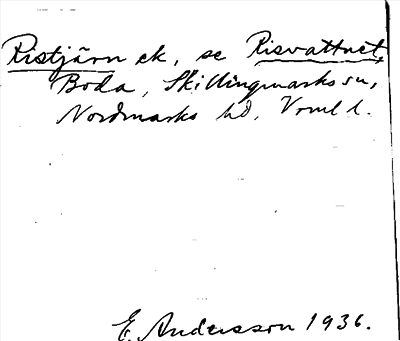 Ristjärn ek, se Risvattnet,
Boda, Skillingmarks sn,
Nordmarks hd, Vrml l.
E. Andersson 1936.